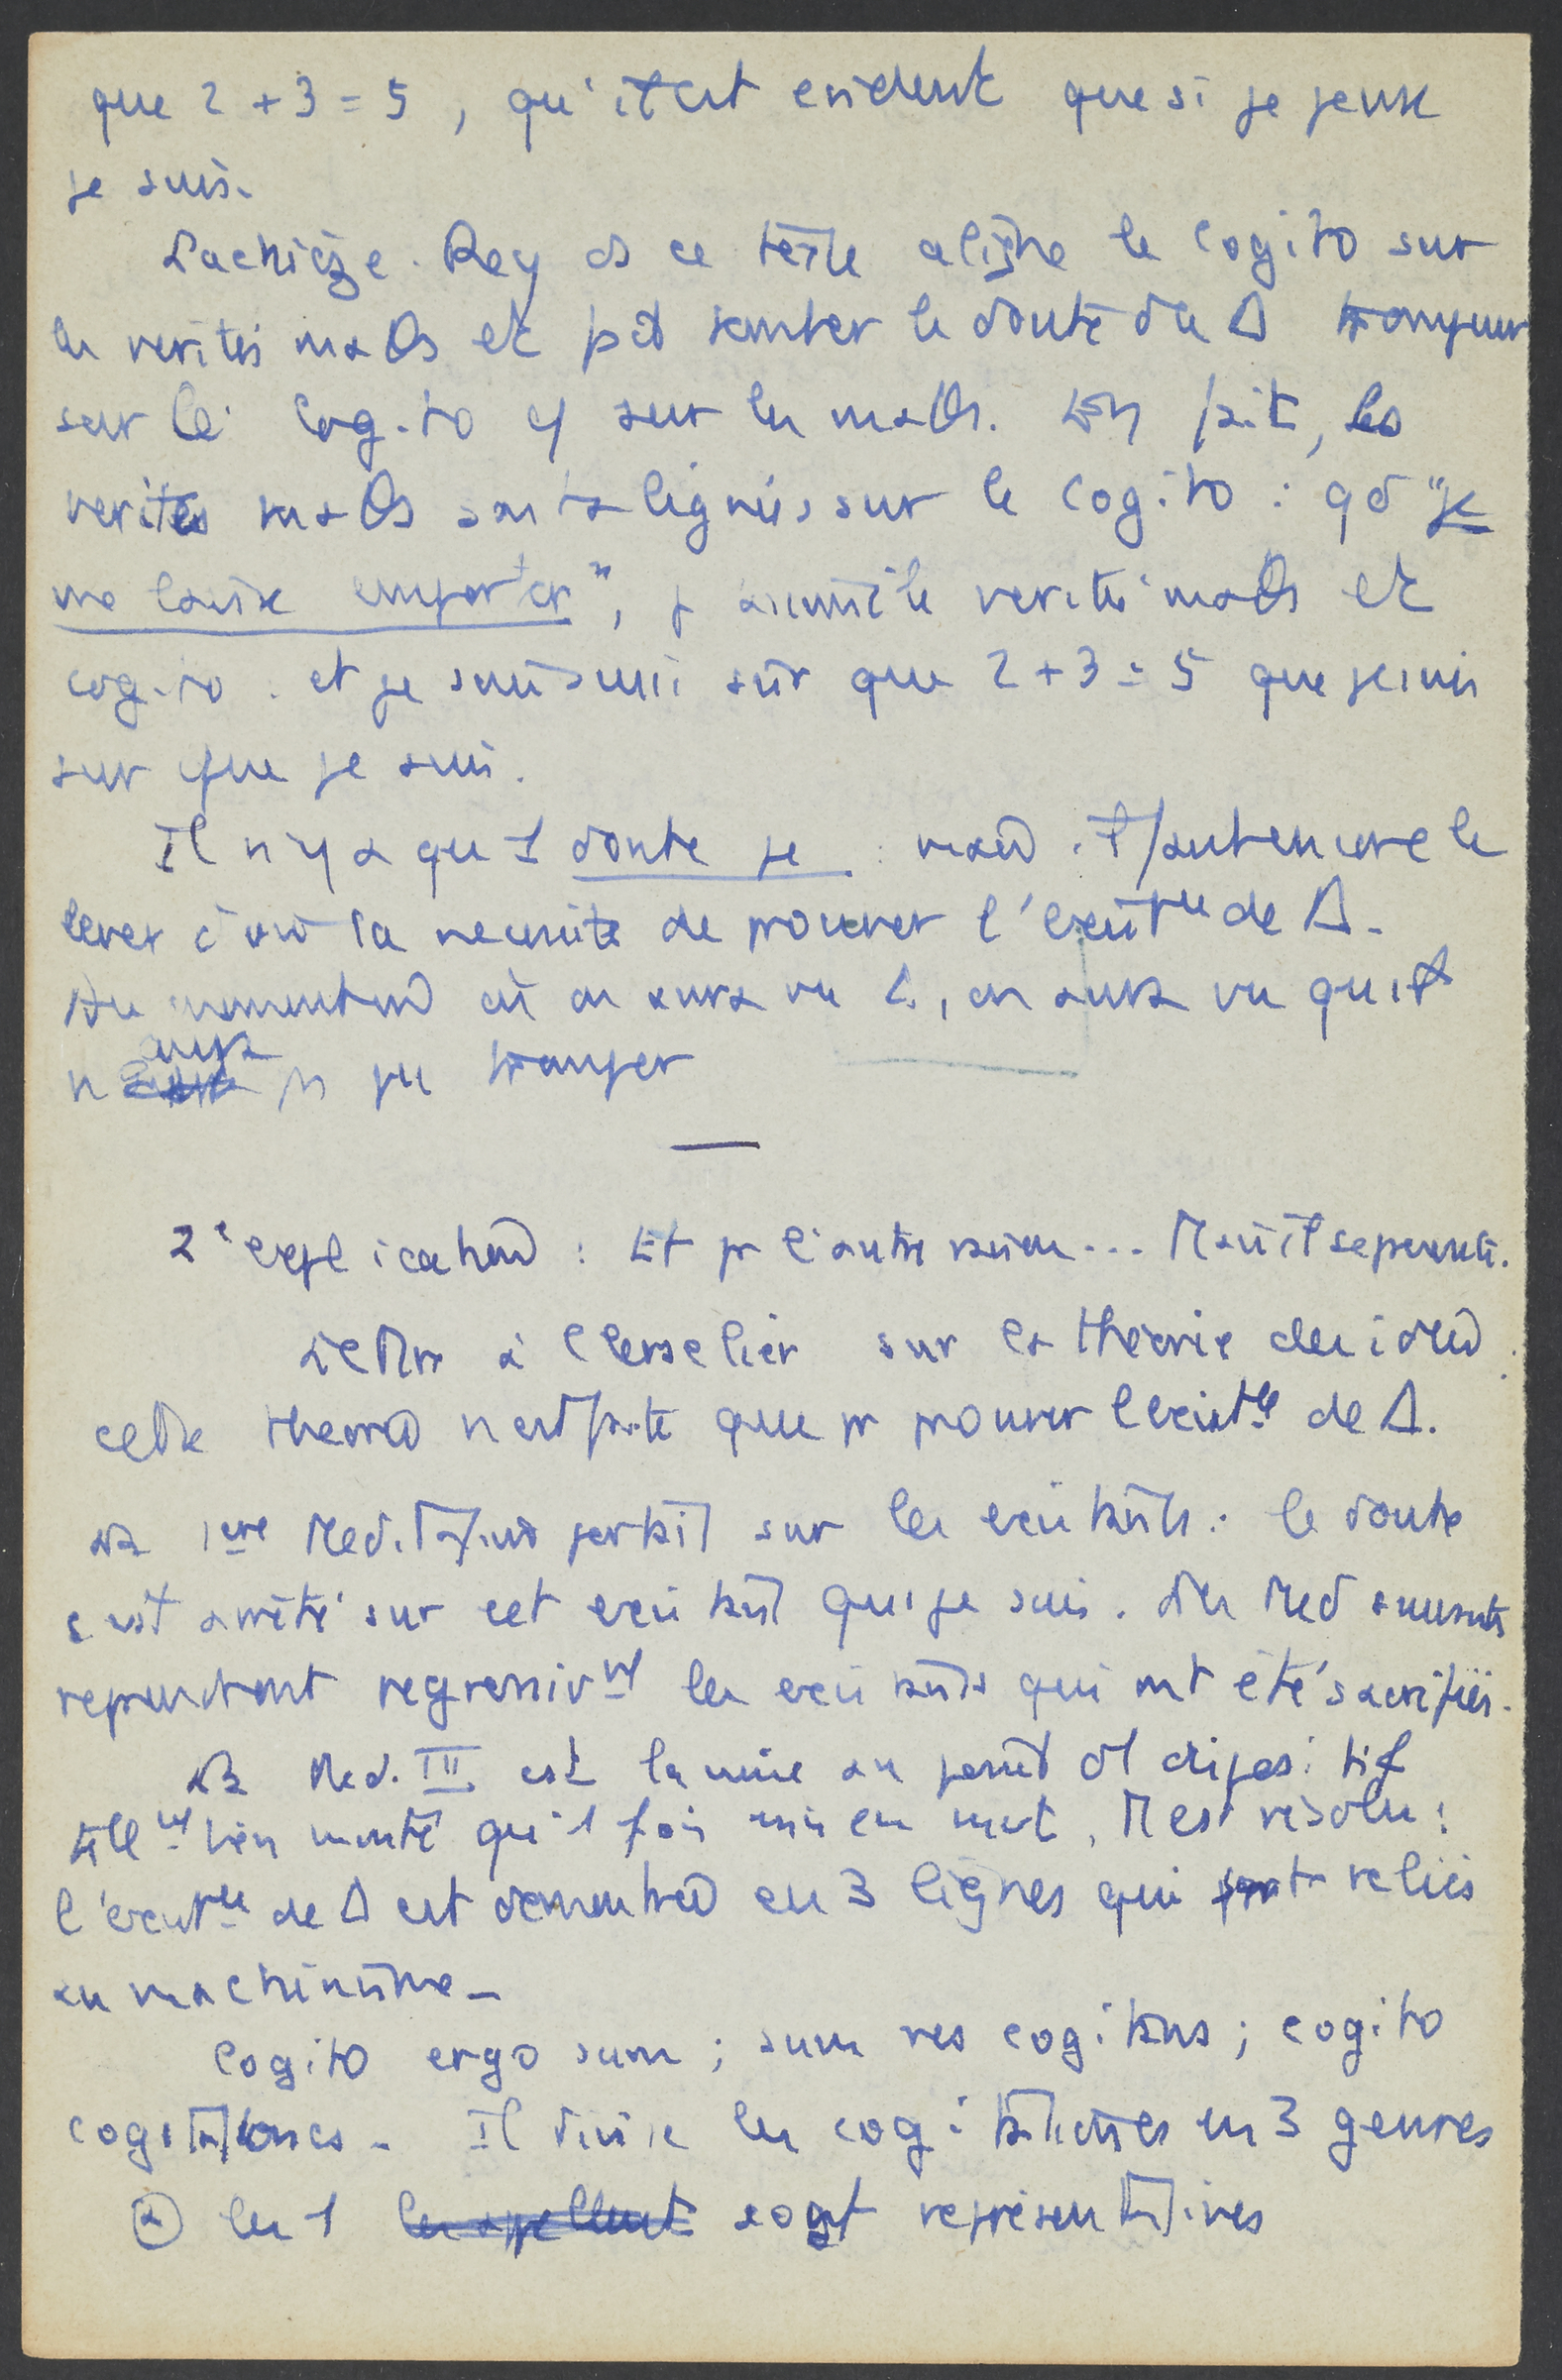 que 2 + 3 = 5, qu'il est evident que si je pense
je suis.
Lachièze-Rey ds ce texte aligne le cogito sur
les verités maths et fait tomber le doute du Δ trompeur
sur le cogito cf sur les maths. En fait, les
verités maths sont alignées sur le cogito : qd "je
me laisse emporter", j'assimile verités maths et
cogito. et je suis aussi sûr que 2 + 3 = 5 que je suis
sur que je suis.
Il n'y a que 1 doute je : mais il faut encore le
lever d'où la necessité de prouver l'exist^ce de Δ.
Au moment où on aura vu Δ, on aura vu qu'il
n'aura pu tromper
2e explication : Et pr l'autre raison... Mais il se presente.
Lettre à Clerselier sur la théorie des idées.
cette theorie n'est faite que pr prouver l'exist^ce de Δ.
La 1ère Meditation portait sur les existants : le doute
s'est arrêté sur cet existant que je suis. Les Med suivantes
reprendront regressiv^mt les existants qui ont été sacrifiés.
La Med. III est la mise au point d'1 dispositif
tell^mt bien monté qu'1 fois mis en mvt, M est résolu :
l'exist^ce de Δ est demontrée en 3 lignes qui sont reliées
au machinisme.
Cogito ergo sum ; sum res cogitans ; cogito
cogitationes. Il divise les cogitationes en 3 genres
(α) les 1 sont représentatives